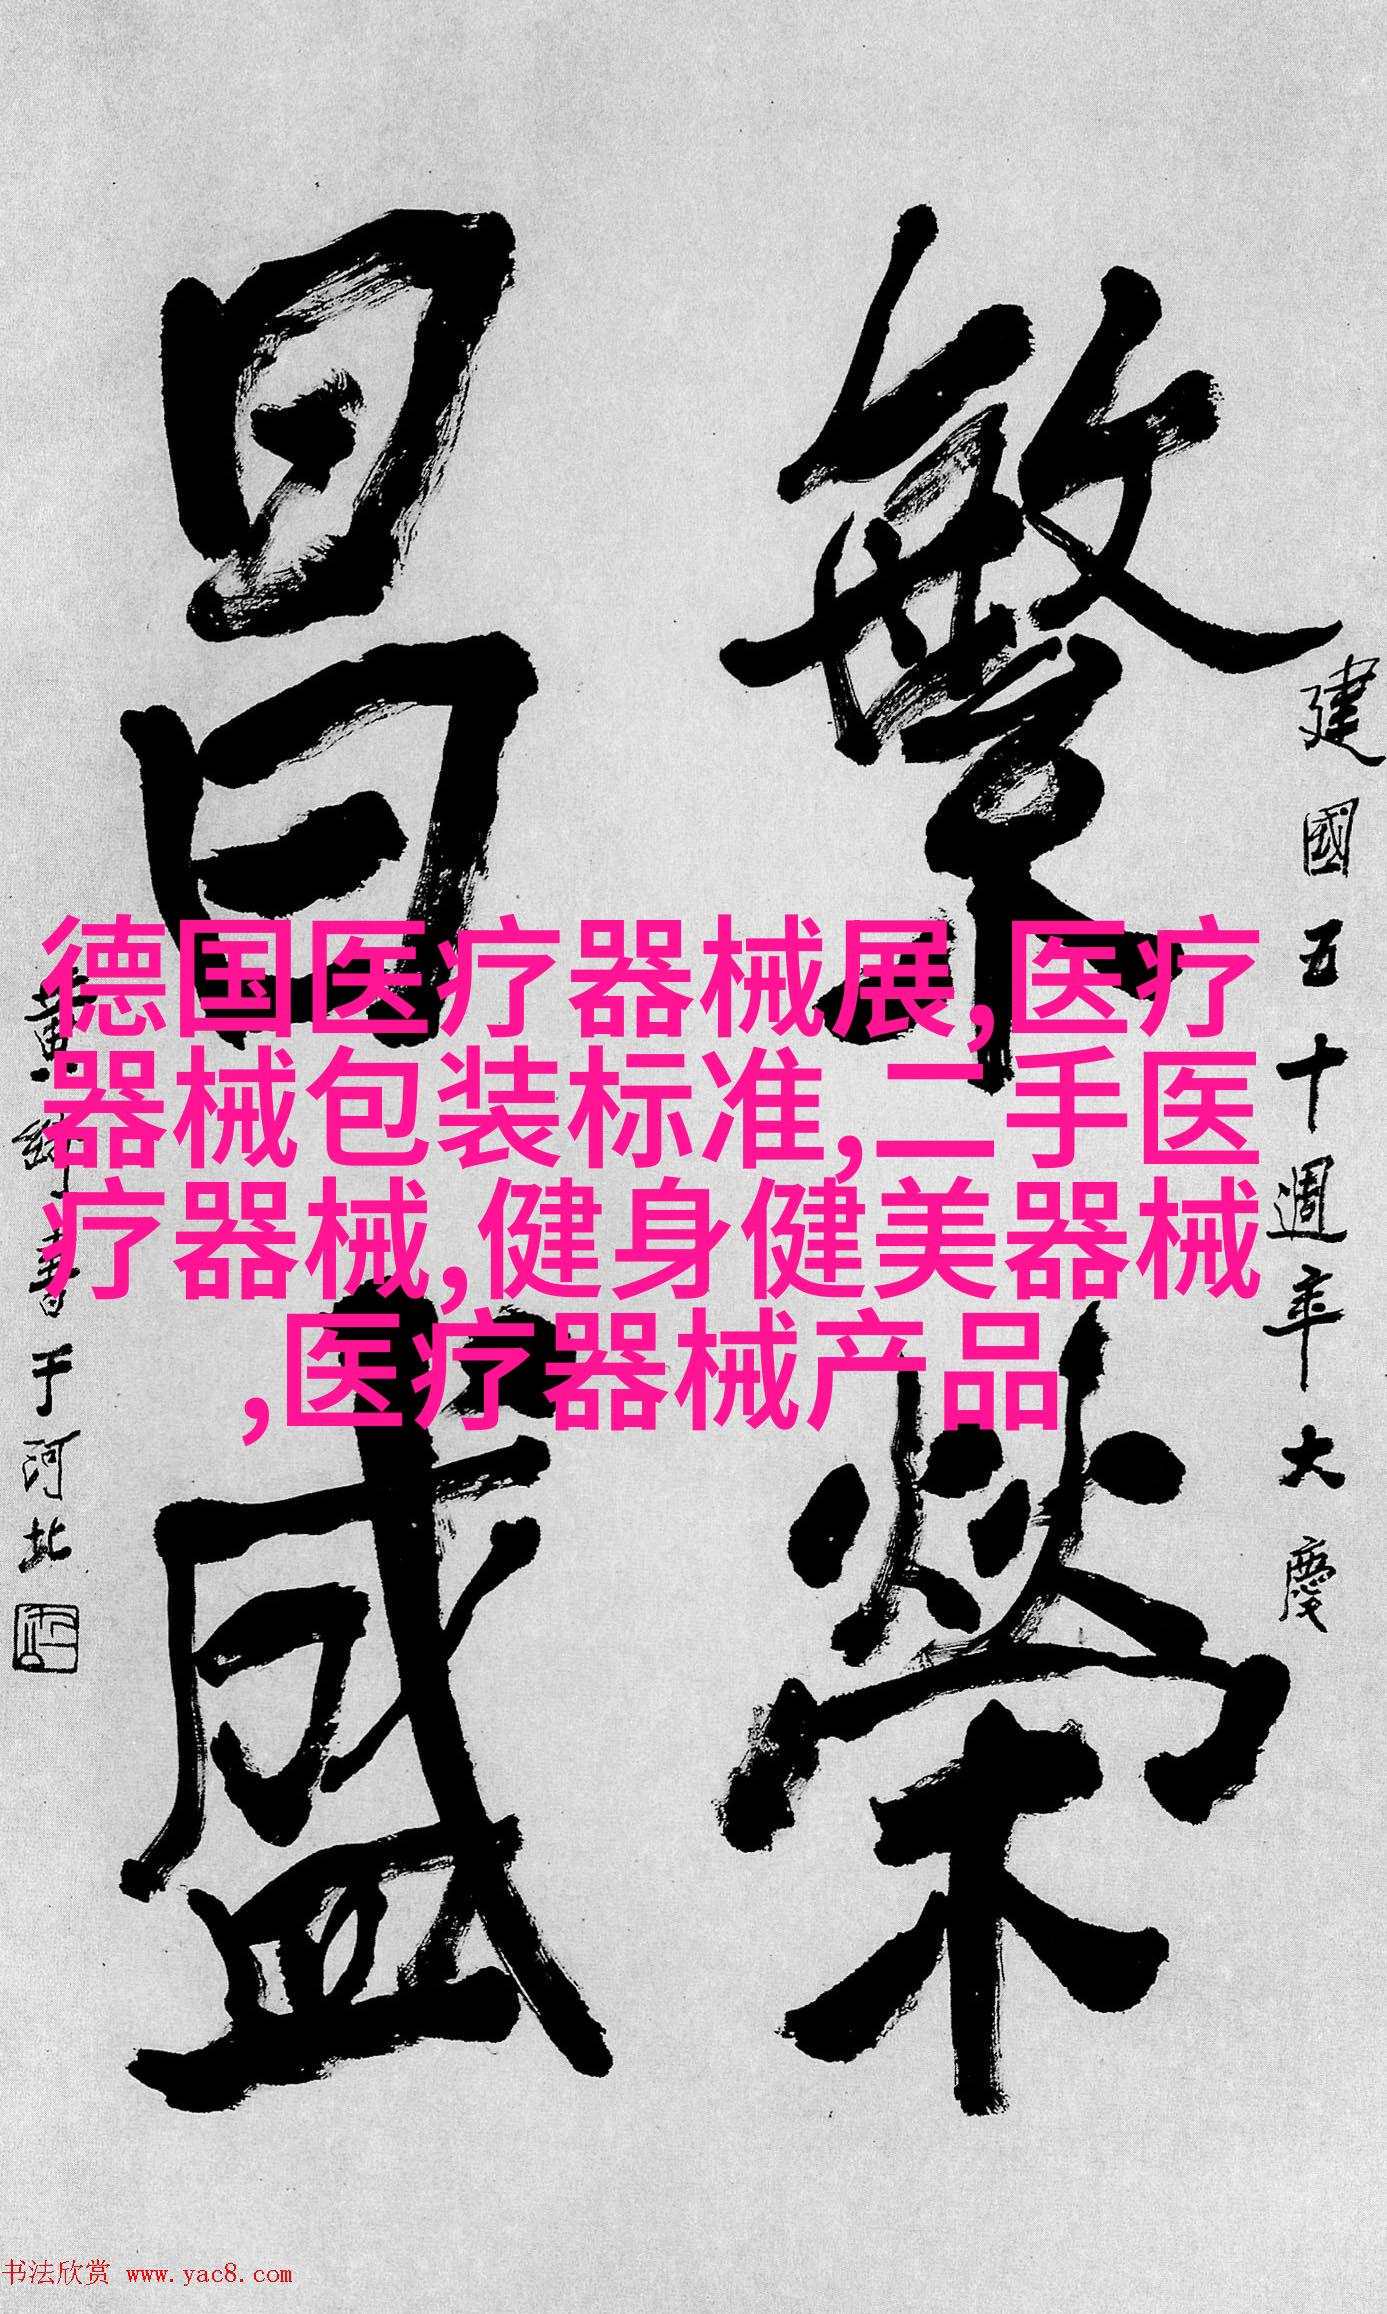 建國五十週年大慶
繁榮
昌盛
黄綺書于河北
德国医疗器械展,医疗
器械包装标准,二手医
疗器械,健身健美器械
,医疗器械产品
书法欣赏 www.yac8.com